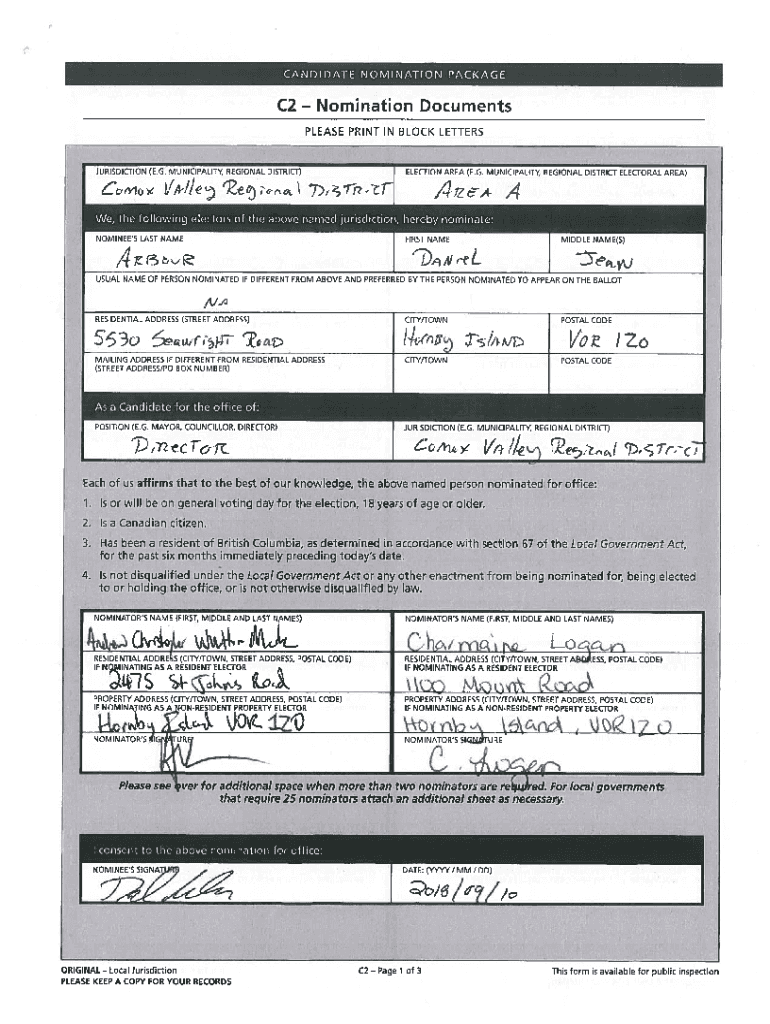 CANDIDATE NOMINATION PACKAGE
C2 – Nomination Documents
PLEASE PRINT IN BLOCK LETTERS
JURISDICTION (E.G. MUNICIPALITY, REGIONAL DISTRICT) ELECTION AREA (E.G. MUNICIPALITY, REGIONAL DISTRICT ELECTORAL AREA)
Comox Valley Regional District AREA A
We, the following electors of the above named jurisdiction, hereby nominate:
NOMINEE'S LAST NAME FIRST NAME MIDDLE NAME(S)
ARBOUR DANIEL JEAN
USUAL NAME OF PERSON NOMINATED IF DIFFERENT FROM ABOVE AND PREFERRED BY THE PERSON NOMINATED TO APPEAR ON THE BALLOT
NA
RESIDENTIAL ADDRESS (STREET ADDRESS) CITY/TOWN POSTAL CODE
5530 Seawright Road Hornby Island V0R 1Z0
MAILING ADDRESS IF DIFFERENT FROM RESIDENTIAL ADDRESS CITY/TOWN POSTAL CODE
(STREET ADDRESS/PO BOX NUMBER)
As a Candidate for the office of:
POSITION (E.G. MAYOR, COUNCILLOR, DIRECTOR) JURISDICTION (E.G. MUNICIPALITY, REGIONAL DISTRICT)
Director Comox Valley Regional District
Each of us affirms that to the best of our knowledge, the above named person nominated for office:
1. Is or will be on general voting day for the election, 18 years of age or older.
2. Is a Canadian citizen.
3. Has been a resident of British Columbia, as determined in accordance with section 67 of the Local Government Act,
for the past six months immediately preceding today's date.
4. Is not disqualified under the Local Government Act or any other enactment from being nominated for, being elected
to or holding the office, or is not otherwise disqualified by law.
NOMINATOR'S NAME (FIRST, MIDDLE AND LAST NAMES) NOMINATOR'S NAME (FIRST, MIDDLE AND LAST NAMES)
Andrew Christopher Charmaine Logan
RESIDENTIAL ADDRESS (CITY/TOWN, STREET ADDRESS, POSTAL CODE) RESIDENTIAL ADDRESS (CITY/TOWN, STREET ADDRESS, POSTAL CODE)
IF NOMINATING AS A RESIDENT ELECTOR IF NOMINATING AS A RESIDENT ELECTOR
2475 St Johns Road 1100 Mount Road
PROPERTY ADDRESS (CITY/TOWN, STREET ADDRESS, POSTAL CODE) PROPERTY ADDRESS (CITY/TOWN, STREET ADDRESS, POSTAL CODE)
IF NOMINATING AS A NON-RESIDENT PROPERTY ELECTOR IF NOMINATING AS A NON-RESIDENT PROPERTY ELECTOR
Hornby Island V0R 1Z0 Hornby Island, V0R1Z0
NOMINATOR'S SIGNATURE NOMINATOR'S SIGNATURE
C. Logan
Please see over for additional space when more than two nominators are required. For local governments
that require 25 nominators attach an additional sheet as necessary.
I consent to the above nomination for office:
NOMINEE'S SIGNATURE DATE: (YYYY / MM / DD)
2018/09/10
ORIGINAL – Local Jurisdiction C2 – Page 1 of 3 This form is available for public inspection
PLEASE KEEP A COPY FOR YOUR RECORDS